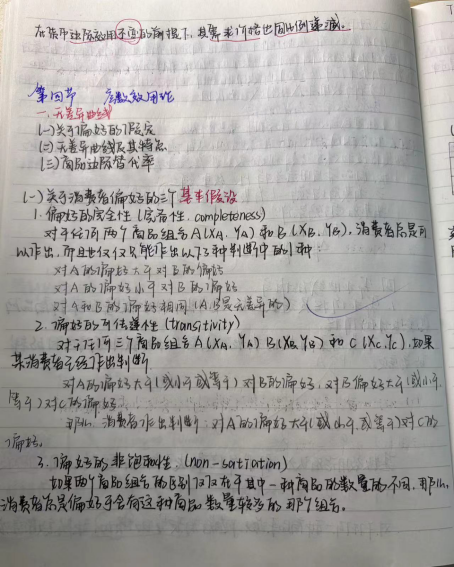 在货币边际效用不变的前提下，其需求价格也同比例递减。
第四节 序数效用论
一、无差异曲线
(一)关于偏好的假定
(二)无差异曲线及其特点
(三)商品边际替代率
(一)关于消费者偏好的三个基本假设
1. 偏好的完全性(完备性, completeness)
对于任何两个商品组合A(XA, YA)和B(XB, YB), 消费者总是可
以作出, 而且也仅仅只能作出以下3种判断中的1种:
对A的偏好大于对B的偏好
对A的偏好小于对B的偏好
对A和B的偏好相同(A,B是无差异的)
2. 偏好的可传递性(transitivity)
对于任何三个商品组合A(XA, YA) B(XB, YB) 和 C(XC, YC), 如果
某消费者已经作出判断
对A的偏好大于(或小于或等于)对B的偏好, 对B偏好大于(或小于,
等于)对C的偏好
那么, 消费者作出判断: 对A的偏好大于(或小于, 或等于)对C的
偏好.
3. 偏好的非饱和性, (non-satiation)
如果两个商品组合的区别仅仅在于其中一种商品的数量的不同, 那么,
消费者总是偏好于含有这种商品数量较多的那个组合。